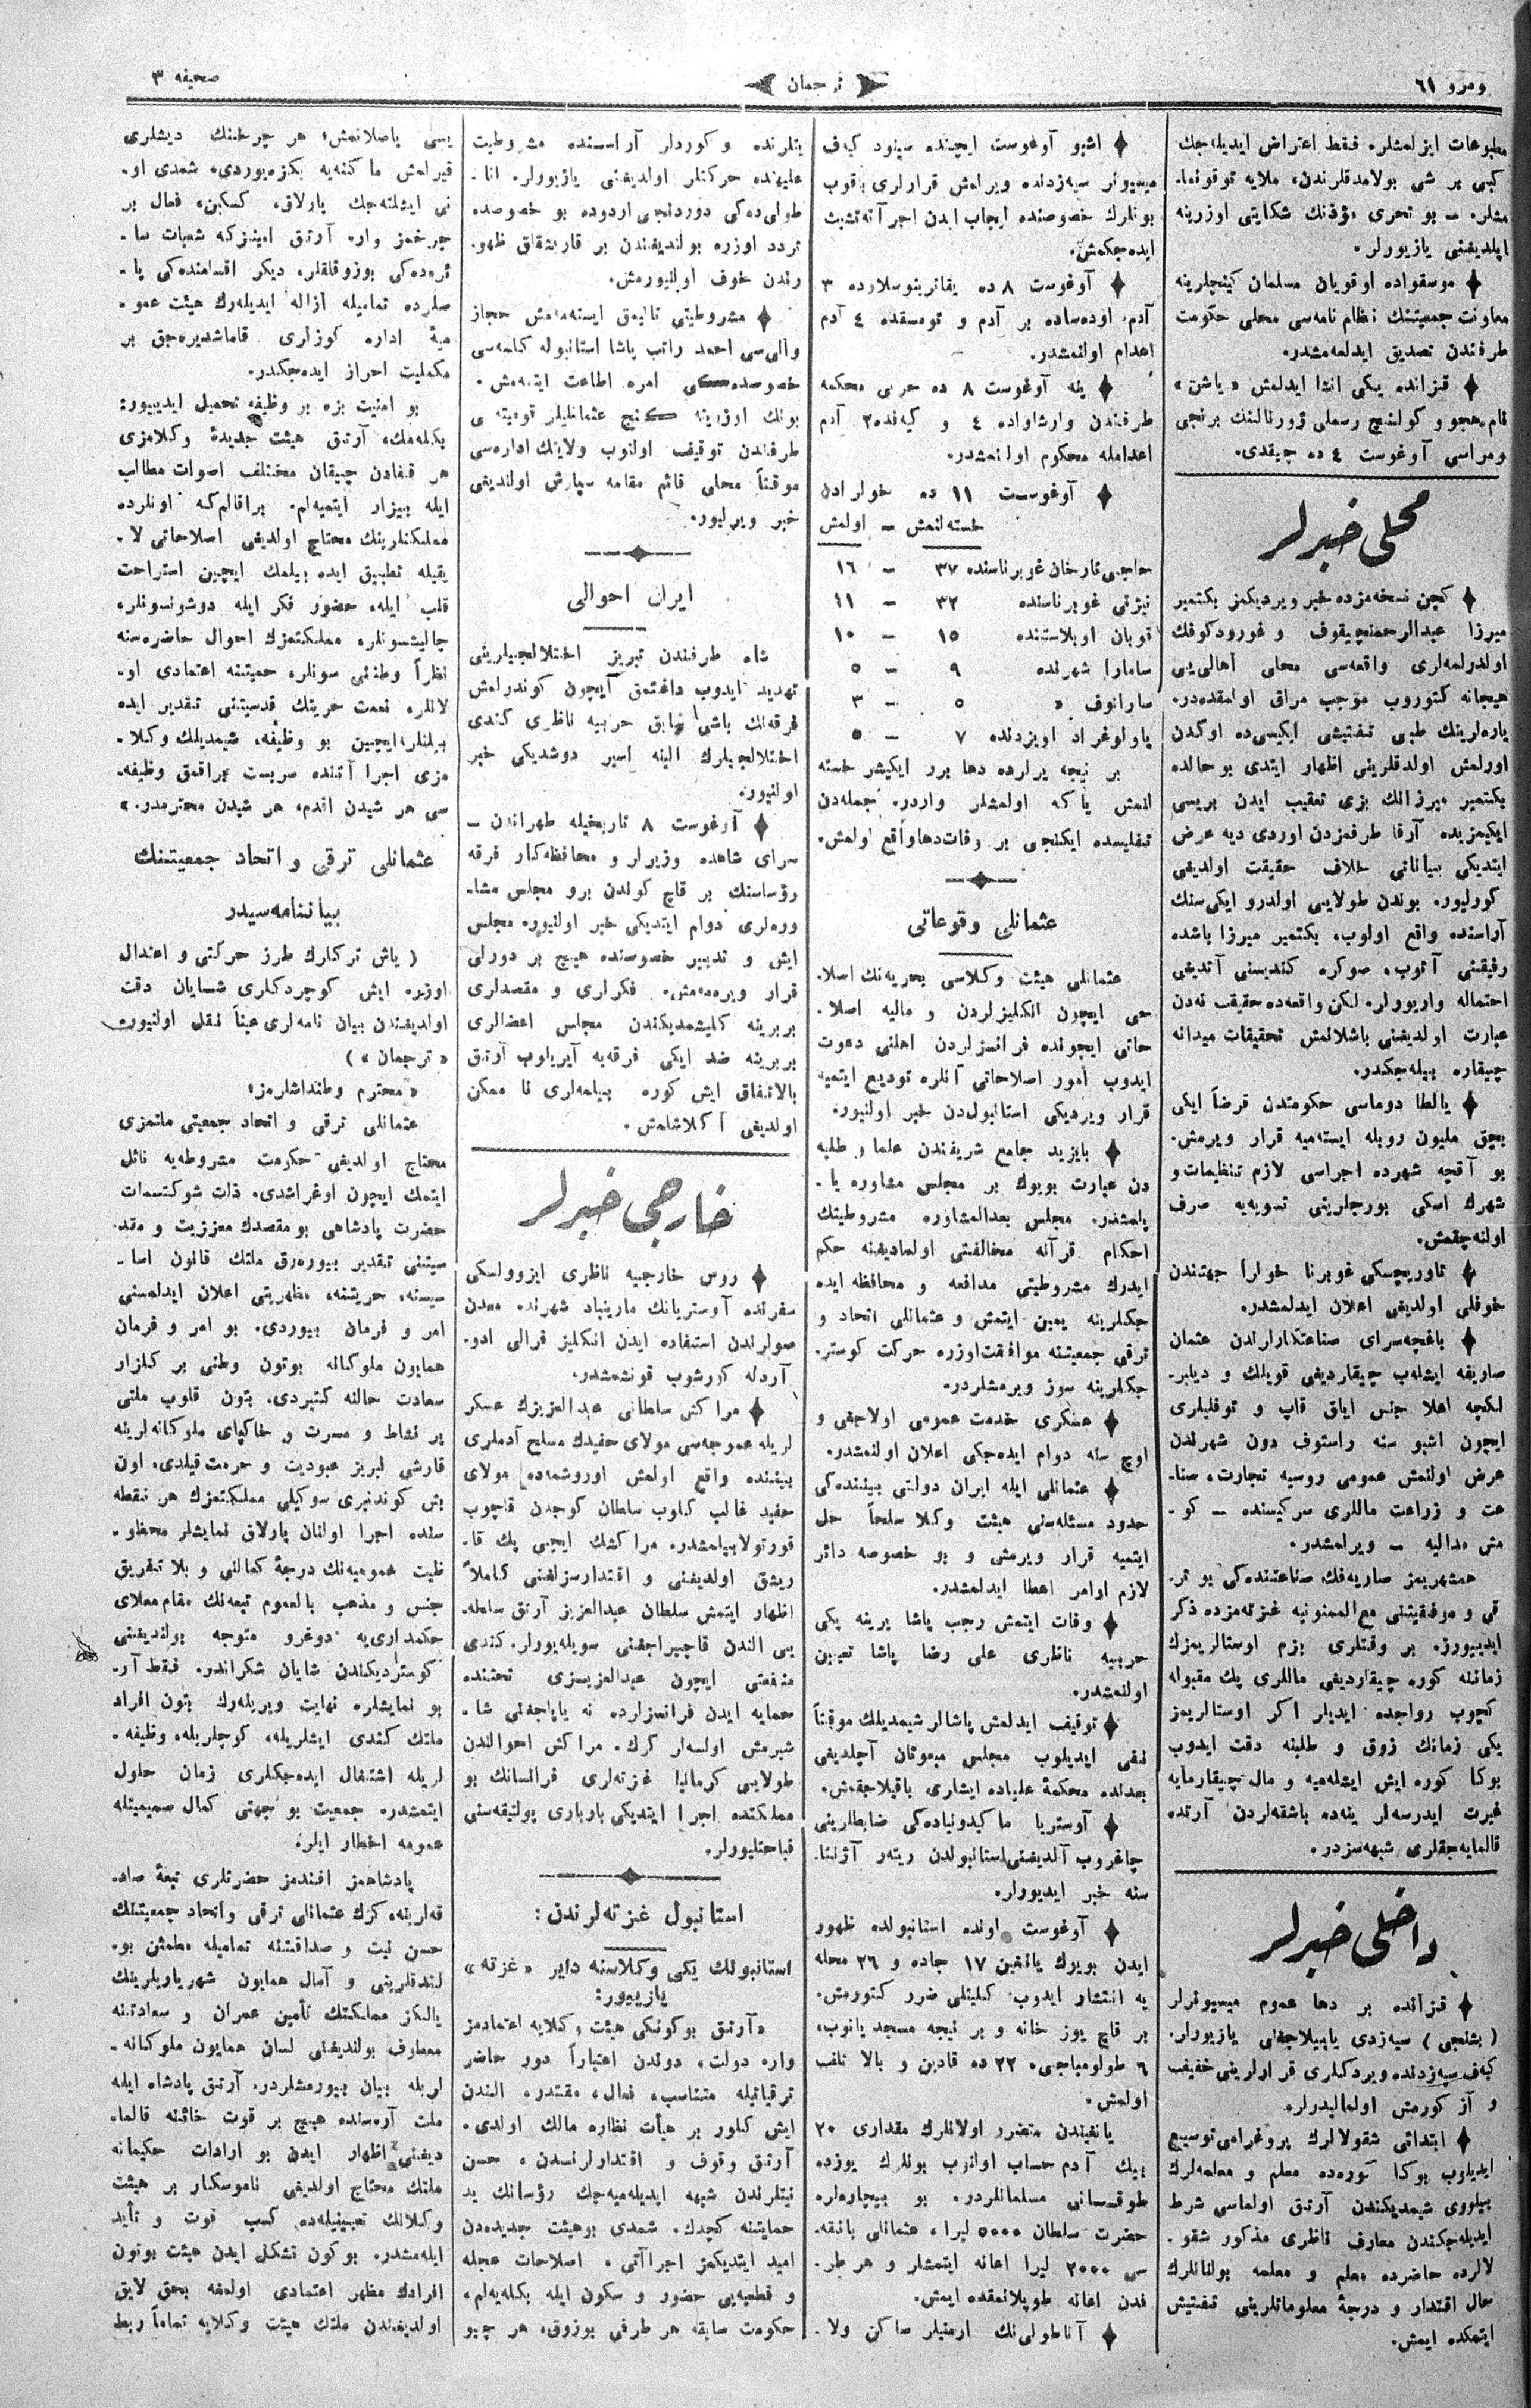 ومرو ٦١
ترجمان
صحيفه ٣
مطبوعات ايزلمشلر. فقط اعتراض ايديله‌جك
كبى بر شى بولامدقلرندن، ملايه توقونما.
مشلر. ـ بو تحرى مؤذنك شكايتى اوزرينه
اپلديغنى يازيورلر.
موسقواده اوقويان مسلمان كينچلرينه
معاونت جمعيتنك نظام نامه‌سى محلى حكومت
طرفندن تصديق ايدلمه‌مشدر.
قزانده يكى انشا ايدلمش «ياشن»
نام هجو و كولنچ رسملى ژورنالنك برنجى
ومراسى آوغوست ٤ ده چيقدى.
محلى خبرلر
كچن نسخه‌مزده خبر ويرديكمز بكتمير
ميرزا عبدالرحمنچيقوف و غورودكوفك
اولدرلمه‌لرى واقعه‌سى محلى أهالى‌يى
هيجانه كتوروب موجب مراق اولمقده‌در.
ياره‌لرينك طبى تفتيشى ايكيسى‌ده اوكدن
اورلمش اولدقلرينى اظهار ايتدى بو حالده
بكتمير ميرزانك بزى تعقيب ايدن بريسى
ايكيمزيده آرقا طرفمزدن اوردى ديه عرض
ايتديكى بياناتى خلاف حقيقت اولديغى
كورليور. بوندن طولايى اولدرو ايكى‌سنك
آراسنده واقع اولوب، بكتمير ميرزا باشده
رفيقنى آتوب، صوكره كنديسنى آتديغى
احتماله واريورلر. لكن واقعه‌ده حقيقت نه‌دن
عبارت اولديغنى باشلانمش تحقيقات ميدانه
چيقاره بيله‌جكدر.
يالطا دوماسى حكومتدن قرضاً ايكى
بچق مليون روبله ايسته‌ميه قرار ويرمش.
بو آقچه شهرده اجراسى لازم تنظيمات و
شهرك اسكى بورچلرينى تسويه‌يه صرف
اولنه‌جقمش.
تاوريچسكى غوبرنا خولرا جهتندن
خوفلى اولديغى اعلان ايدلمشدر.
باغچه‌سراى صناعتكارلرندن عثمان
صاريفه ايشله‌ب چيقارديغى قويلك و ديلبر.
لنكچه اعلا جنس اياق قاپ و توفليلرى
ايچون اشبو سنه راستوف دون شهرندن
عرض اولنمش عمومى روسيه تجارت، صنا.
عت و زراعت ماللرى سركيسنده ـ كو.
مش مداليه ـ ويرلمشدر.
همشهريمز صاريه‌فك صناعتنده‌كى بو تر.
قى و موفقيتنى مع‌الممنونيه غزته‌مزده ذكر
ايدييورز. بر وقتلرى بزم اوستالريمزك
زماننه كوره چيقارديغى ماللرى پك مقبوله
كچوب رواجده ايديلر اكر اوستالريمز
يكى زمانك زوق و طلبنه دقت ايدوب
بوكا كوره ايش ايشله‌ميه و مال چيقارمايه
غيرت ايدرسه‌لر ينه‌ده باشقه‌لردن آرتده
قالمايه‌جقلرى شبهه‌سزدر.
داخلى خبرلر
قزانده بر دها عموم ميسيونرلر
(بشنجى) سيه‌زدى يابيلاجغنى يازيورلر.
كيه‌ف سيه‌زدنده ويردكلرى قرارلرينى خفيف
و آز كورمش اولماليدرلر.
ابتدائى شقولالرك پروغرامى توسييع
ايديلوب بوكا كوره‌ده معلم و معلمه‌لرك
بيلووى شيمديكندن آرتق اولماسى شرط
ايديله‌جكندن معارف ناظرى مذكور شقو.
لالرده حاضرده معلم و معلمه بولنانلرك
حال اقتدار و درجۀ معلوماتلرينى تفتيش
ايتمكده ايمش.
اشبو آوغوست ايچنده سينود كيه‌ف
ميسيونر سيه‌زدنده ويرلمش قرارلرى باقوب
بونلرك خصوصنده ايجاب ايدن اجراآته تشبث
ايده‌جكمش.
آوغوست ٨ ده يقاترينوسلاوده ٣
آدم، اوده‌ساده بر آدم و تومسقده ٤ آدم
اعدام اولنمشدر.
ينه آوغوست ٨ ده حربى محكمه
طرفندن وارشاواده ٤ و كيه‌فده ٢ آدم
اعدامله محكوم اولنمشدر.
آوغوست ١١ ده خولرادن
خسته‌لنمش ـ اولمش
حاجى‌تارخان غوبرناسنده ٣٧ ـ ١٦
نيژنى غوبرناسنده ٣٢ ـ ١١
قوبان اوبلاستنده ١٥ ـ ١٠
سامارا شهرنده ٩ ـ ٥
ساراتوف » ٥ ـ ٣
پاولوغراد اويزدنده ٧ ـ ٥
بر نيچه يرلرده دها برر ايكيشر خسته
لنمش ياكه اولمشلر واردر. جمله‌دن
تفليسده ايكنجى بر وفات دها واقع اولمش.
عثمانلى وقوعاتى
عثمانلى هيئت وكلاسى بحريه‌نك اصلا.
حى ايچون انكليزلردن و ماليه اصلا.
حاتى ايچونده فرانسزلردن اهلنى دعوت
ايدوب أمور اصلاحاتى آنلره توديع ايتميه
قرار ويرديكى استانبول‌دن خبر اولنيور.
بايزيد جامع شريفندن علما و طلبه
دن عبارت بويوك بر مجلس مشاوره يا.
پلمشدر. مجلس بعدالمشاوره مشروطيتك
احكام قرآنه مخالفتى اولماديغنه حكم
ايدرك مشروطيتى مدافعه و محافظه ايده
جكلرينه يمين ايتمش و عثمانلى اتحاد و
ترقى جمعيتنه موافقت اوزره حركت كوستر.
جكلرينه سوز ويرمشلردر.
عسكرى خدمت عمومى اولاجغى و
اوچ سنه دوام ايده‌جكى اعلان اولنمشدر.
عثمانلى ايله ايران دولتى بيننده‌كى
حدود مسئله‌سنى هيئت وكلا سلحاً حل
ايتميه قرار ويرمش و بو خصوصه دائر
لازم اوامر اعطا ايدلمشدر.
وفات ايتمش رجب پاشا يرينه يكى
حربيه ناظرى على رضا پاشا تعيين
اولنمشدر.
توقيف ايدلمش پاشالر شيمديلك موقتاً
نفى ايديلوب مجلس مبعوثان آچلديغى
بعدنده محكمۀ علياده ايشلرى باقيلاجقمش.
آوستريا ماكيدونياده‌كى ضابطلرينى
چاغروب آلديغنى استانبولدن ريته‌ر آژنتا.
سنه خبر ايديورلر.
آوغوست اونده استانبولده ظهور
ايدن بويوك يانغين ١٧ جاده و ٢٦ محله
يه انتشار ايدوب كليتلى ضرر كتورمش.
بر قاچ يوز خانه و بر نيچه مسجد يانوب،
٦ طولومباجى، ٢٢ ده قادين و بالا تلف
اولمش.
يانغيندن متضرر اولانلرك مقدارى ٢٠
بيك آدم حساب اولنوب بونلرك يوزده
طوقسانى مسلمانلردر. بو بيچاره‌لره
حضرت سلطان ٥٠٠٠ ليرا، عثمانلى بانقه.
سى ٢٠٠٠ ليرا اعانه ايتمشلر و هر طر.
فدن اعانه طوپلانمقده ايمش.
آناطولى‌نك ارمنيلر ساكن ولا.
يتلرنده و كوردلر آراسنده مشروطيت
عليهنده حركتلر اولديغنى يازيورلر. انا.
طولى‌ده‌كى دوردنجى اردوده بو خصوصده
تردد اوزره بولنديغندن بر قارشقلق ظهو.
رندن خوف اولنيورمش.
مشروطيتى تانيمق ايسته‌مه‌مش حجاز
والى‌سى احمد راتب پاشا استانبوله كلمه‌سى
خصوصده‌كى امره اطاعت ايتمه‌مش.
بونك اوزرينه كنج عثمانليلر قوميته‌سى
طرفندن توقيف اولنوب ولايتك اداره‌سى
موقتاً محلى قائم مقامه سپارش اولنديغى
خبر ويرليور.
ايران احوالى
شاه طرفندن تبريز اختلالجيلرينى
تهديد ايدوب داغتمق ايچون كوندرلمش
فرقه‌نك باشى سابق حربيه ناظرى كندى
اختلالجيلرك الينه اسير دوشديكى خبر
اولنيور.
آوغوست ٨ تاريخيله طهراندن ـ
سراى شاهده وزيرلر و محافظه‌كار فرقه
رؤساسنك بر قاچ كوندن برو مجلس مشا.
وره‌لرى دوام ايتديكى خبر اولنيور. مجلس
ايش و تدبير خصوصنده هيچ بر دورلى
قرار ويره‌مه‌مش. فكرلرى و مقصدلرى
بربرينه كليشمديكندن مجلس اعضالرى
بربرينه ضد ايكى فرقه‌يه آيريلوب آرتق
بالاتفاق ايش كوره بيلمه‌لرى نا ممكن
اولديغى آكلاشلمش.
خارجى خبرلر
روس خارجيه ناظرى ايزوولسكى
سفرنده آوستريانك مارينباد شهرنده معدن
صولرندن استفاده ايدن انكليز قرالى ادو.
آردله كورشوب قونشمشدر.
مراكش سلطانى عبدالعزيزك عسكر
لريله عموجه‌سى مولاى حفيدك مسلح آدملرى
بيننده واقع اولمش اوروشمه‌ده مولاى
حفيد غالب كلوب سلطان كوجدن قاچوب
قورتولابيلمشدر. مراكشك ايچى پك قا.
ريشق اولديغنى و اقتدارسزلغنى كاملاً
اظهار ايتمش سلطان عبدالعزيز آرتق سلطه.
يى الندن قاچيراجغنى سويله‌يورلر. كندى
منفعتى ايچون عبدالعزيزى تحتنده
حمايه ايدن فرانسزلرده نه ياپاجغنى شا.
شيرمش اولسه‌لر كرك. مراكش احوالندن
طولايى كرمانيا غزته‌لرى فرانسانك بو
مملكتده اجرا ايتديكى بارباري پولتيقه‌سنى
قباحتليورلر.
استانبول غزته‌لرندن:
استانبولك يكى وكلاسنه داير «غزته»
يازييور:
«آرتق بوكونكى هيئت وكلايه اعتمادمز
وار. دولت، دوندن اعتباراً دور حاضر
ترقياتيله متناسب، فعال، مقتدر، الندن
ايش كلور بر هيأت نظاره مالك اولدى.
آرتق وقوف و اقتدارلرنسدن، حسن
نيتلرندن شبهه ايديله‌ميه‌جك رؤسانك يد
حمايتنه كچدك. شمدى بو هيئت جديده‌دن
اميد ايتديكمز اجراآتى، اصلاحات عجله
و قطعيه‌يى حضور و سكون ايله بكله‌يه‌لم.
حكومت سابقه هر طرفى بوزوق، هر چيو
يسى پاصلانمش؛ هر چرخنك ديشلرى
قيرلمش ماكنه‌يه بكزه‌يوردى، شمدى او.
نى ايشلته‌جك پارلاق، كسكين، فعال بر
چرخمز وار. آرتق امينزكه شعبات سا.
ئره‌ده‌كى بوزوقلقلر، ديكر اقسامنده‌كى پا.
صلرده تماميله ازاله ايديله‌رك هيئت عمو.
ميۀ اداره كوزلرى قاماشديره‌جق بر
مكمليت احراز ايده‌جكدر.
بو امنيت بزه بر وظيفه تحميل ايدييور:
بكله‌مك، آرتق هيئت جديدۀ وكلامزى
هر قفادن چيقان مختلف اصوات مطالب
ايله بيزار ايتميه‌لم. براقالم كه اونلرده
مملكتلرينك محتاج اولديغى اصلاحاتى لا.
يقيله تطبيق ايده بيلمك ايچين استراحت
قلب ايله، حضور فكر ايله دوشونسونلر،
چاليشسونلر. مملكتمزك احوال حاضره‌سنه
نظراً وطننى سونلر، حميتنه اعتمادى او.
لانلر، نعمت حريتك قدسيتنى تقدير ايده
بيلنلر ايچين بو وظيفه، شيمديلك وكلا.
مزى اجراآتنده سربست براقمق وظيفه.
سى هر شيدن اقدم، هر شيدن محترمدر.»
عثمانلى ترقى و اتحاد جمعيتنك
بياننامه‌سيدر
(ياش تركلرك طرز حركتى و اعتدال
اوزره ايش كوجردكلرى شايان دقت
اولديغندن بيان نامه‌لرى عيناً نقل اولنيور.
«ترجمان»)
«محترم وطنداشلرمز!
عثمانلى ترقى و اتحاد جمعيتى ملتمزى
محتاج اولديغى حكومت مشروطه‌يه نائل
ايتمك ايچون اوغراشدى. ذات شوكتسمات
حضرت پادشاهى بو مقصدك معززيت و مقد.
سيتنى تقدير بيوره‌رق ملتك قانون اسا.
سيسنه، حريتنه، مظهريتى اعلان ايدلمسنى
امر و فرمان بيوردى. بو امر و فرمان
همايون ملوكانه بوتون وطنى بر كلزار
سعادت حالنه كتيردى. بتون قلوب ملتى
پر نشاط و مسرت و خاكپاى ملوكانه‌لرينه
قارشى لبريز عبوديت و حرمت قيلدى. اون
بش كوندنبرى سوكيلى مملكتمزك هر نقطه
سنده اجرا اولنان پارلاق نمايشلر محظو.
ظيت عموميه‌نك درجۀ كمالنى و بلا تفريق
جنس و مذهب بالعموم تبعه‌نك مقام معلاى
حكمدارى‌يه دوغرو متوجه بولنديغنى
كوسترديكندن شايان شكراندر. فقط آر.
بو نمايشلره نهايت ويريله‌رك بتون افراد
ملتك كندى ايشلريله، كوچلريله، وظيفه.
لريله اشتغال ايده‌جكلرى زمان حلول
ايتمشدر. جمعيت بو جهتى كمال صميميتله
عمومه اخطار ايلر.
پادشاهمز افندمز حضرتلرى تبعۀ صاد.
قه‌لرينه، كرك عثمانلى ترقى و اتحاد جمعيتنك
حسن نيت و صداقتنه تماميله مطمئن بو.
لندقلرينى و آمال همايون شهرياريلرينك
يالكز مملكتك تأمين عمران و سعادتنه
معطوف بولنديغنى لسان همايون ملوكانه.
لريله بيان بيورمشلردر. آرتق پادشاه ايله
ملت آره‌سنده هيچ بر قوت خائنه قالما.
ديغنى اظهار ايدن بو ارادات حكيمانه
ملتك محتاج اولديغى ناموسكار بر هيئت
وكلانك تعيينيله‌ده كسب قوت و تأيد
ايله‌مشدر. بوكون تشكل ايدن هيئت بوتون
افرادك مظهر اعتمادى اولمغه بحق لايق
اولديغندن ملتك هيئت وكلايه تماماً ربط